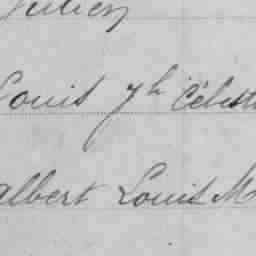 Julien
Louis Jh Célest
albert Louis M